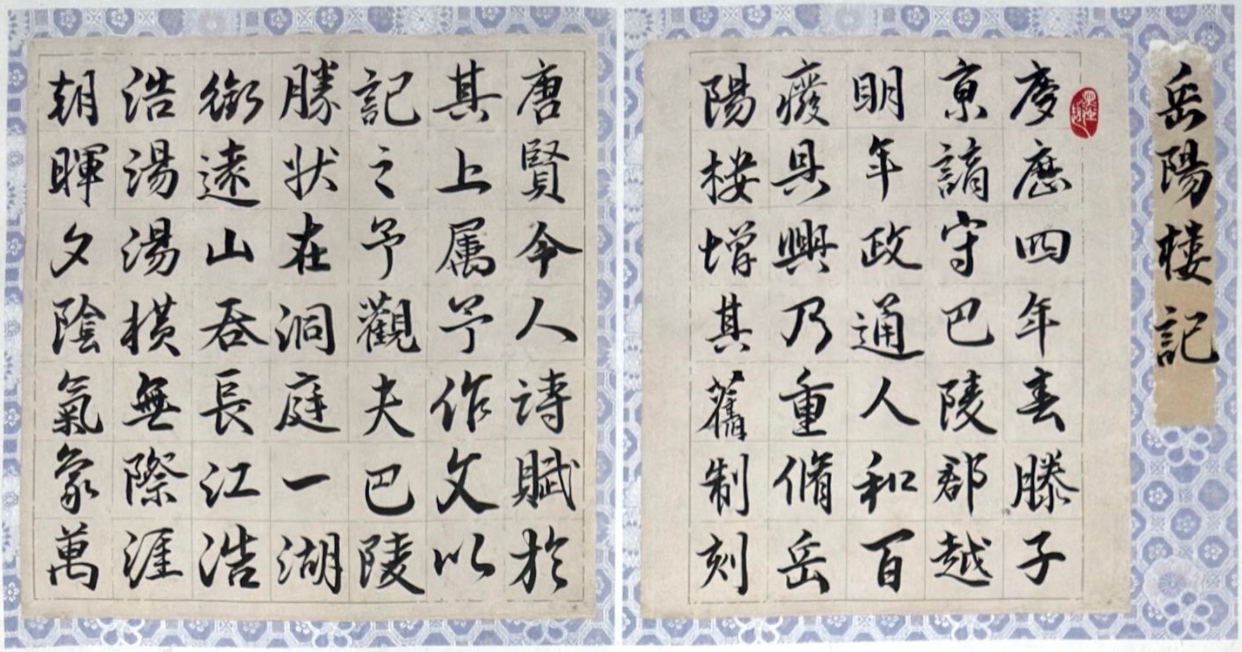 岳陽樓記
慶曆四年春滕子
京謫守巴陵郡越
明年政通人和百
癈具興乃重脩岳
陽樓增其舊制刻
唐賢今人詩賦於
其上属予作文以
記之予觀夫巴陵
勝狀在洞庭一湖
銜遠山吞長江浩
浩湯湯橫無際涯
朝暉夕陰氣象萬